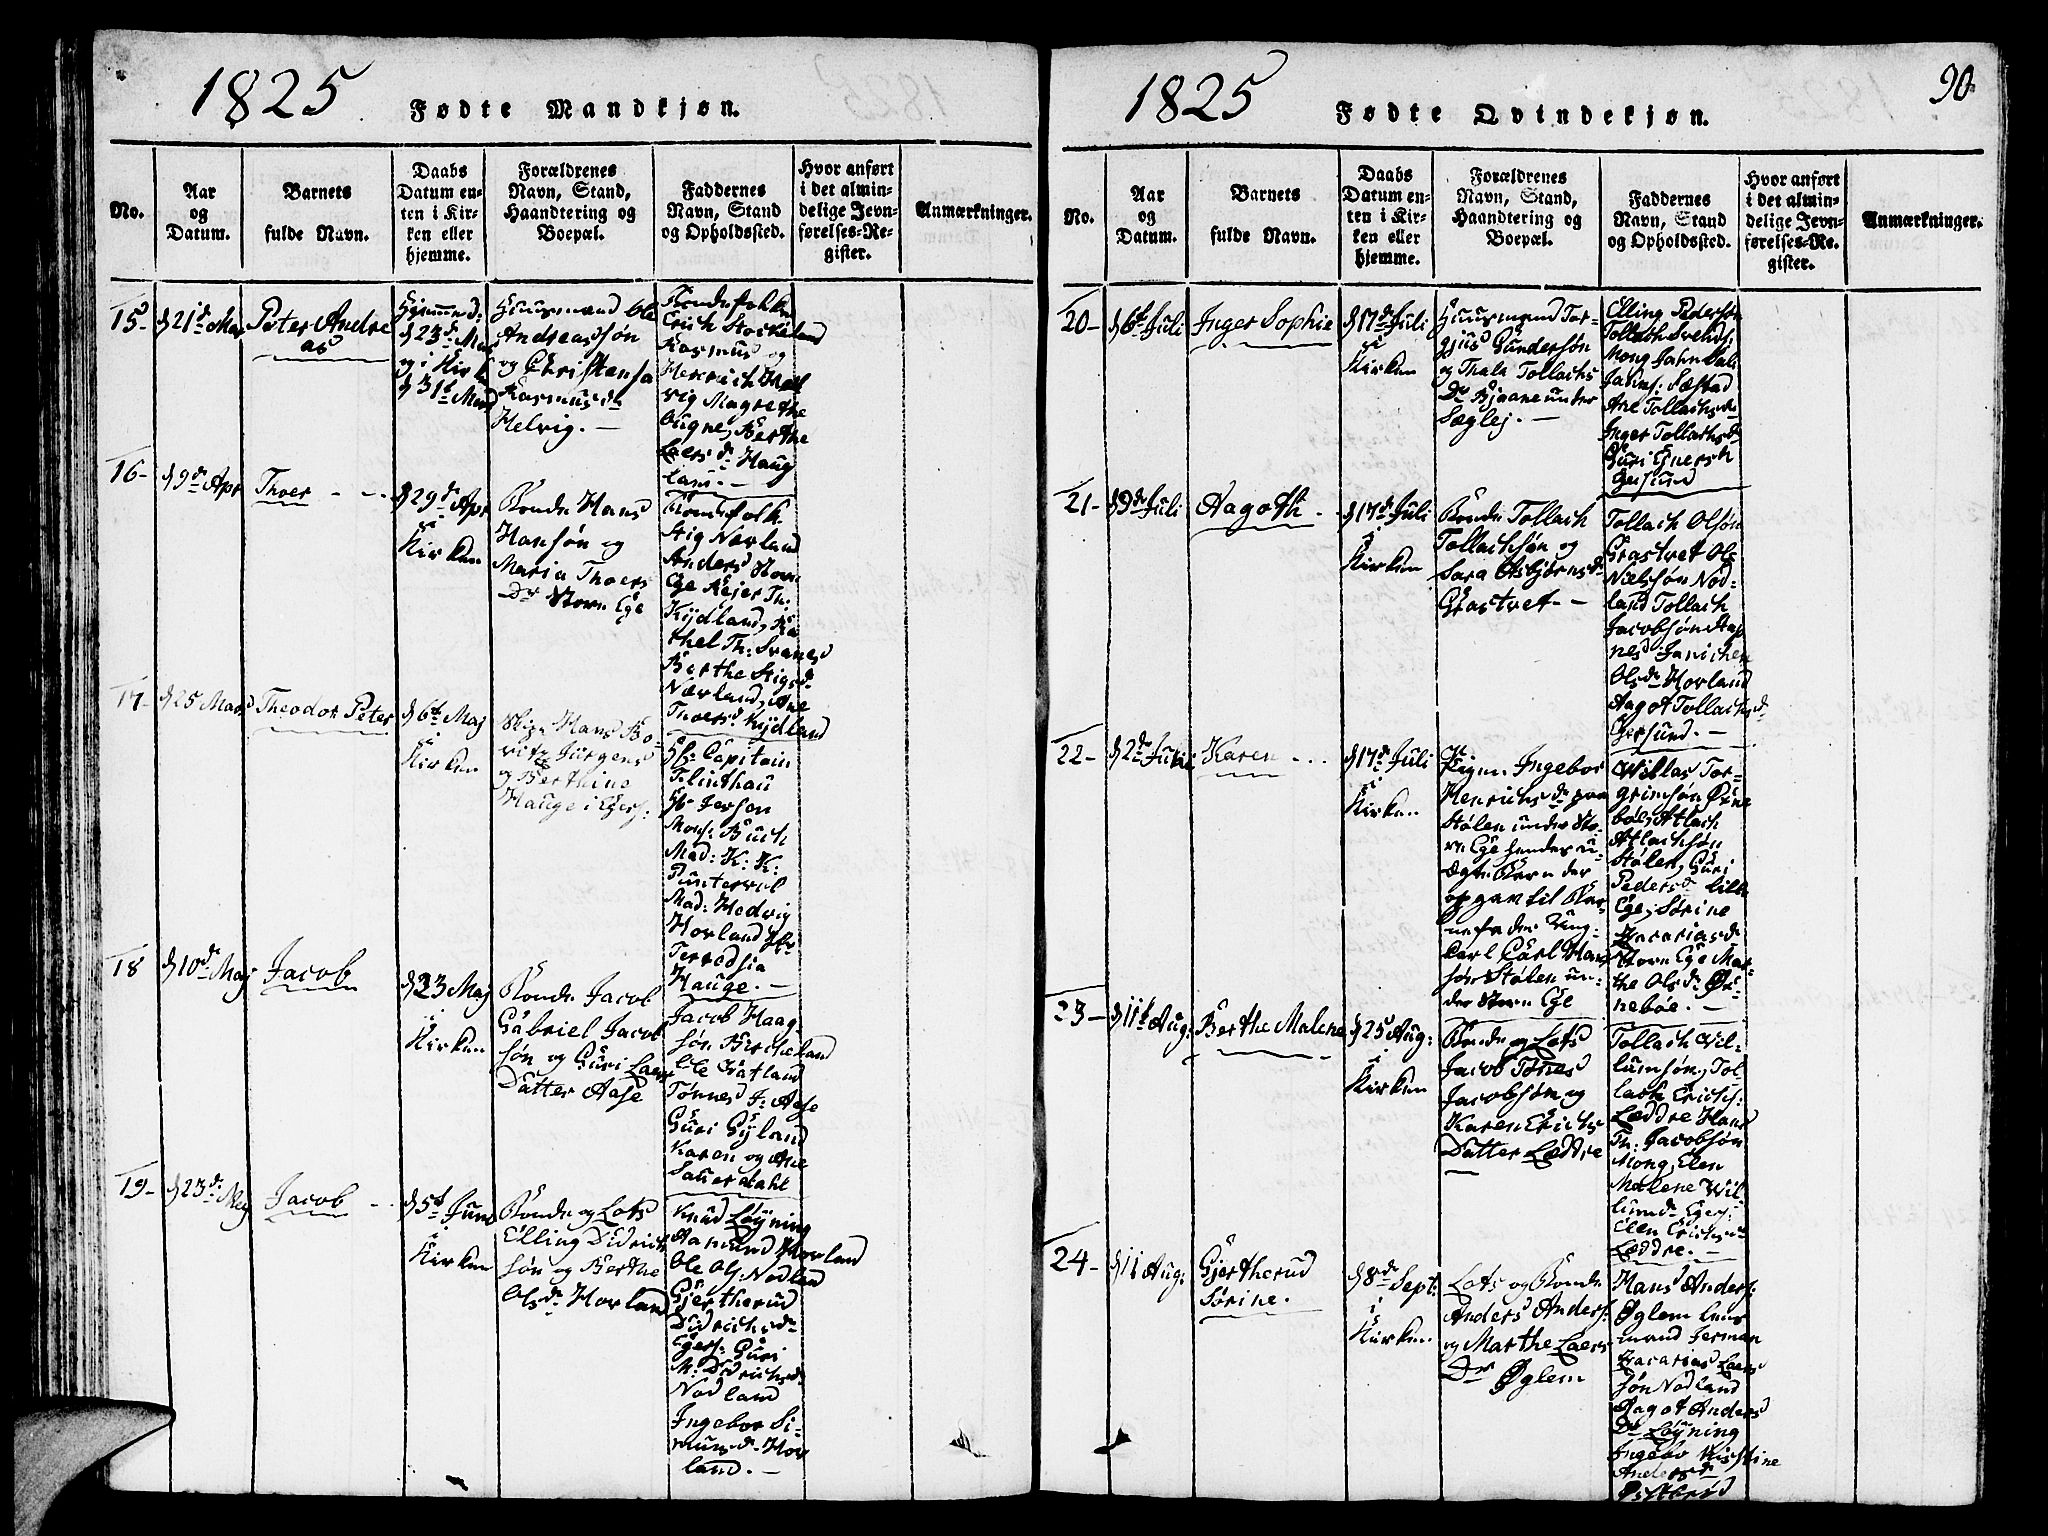 1825 Fødte Mandkjøn.
No.
Aar
og
Datum.
Barnets
fulde Navn.
Daabs
Datum en-
ten i Kir-
ken eller
hjemme.
Forældrenes
Navn, Stand,
Haandtering og
Boepæl.
Faddernes
Navn, Stand
og Opholdssted.
Hvor anført
i det almin-
delige Jevn-
førelses-Re-
gister.
Anmærkninger.
15-
d 21d Mar
Peter Andre
as
Hjemme d:
d 23d Mar
og i Kirk
d 31t Mar
Huusmand Ole
Andreassøn
og Christensa
Rasmusdr
Helvig. -
Kondefolk
Erich Stockeland
Rasmus og
Henrich Hel
vig Magrethe
Augne, Berthe
Laersdr Haug
land. -
16-
d 9d Apr
Thoer - -
d 29d Apr
i
Kirken
Bonde Hans
Hansøn og
Maria Thoers
Dr Store Ege
Bondefolk
Stig Nærland
Anders Store
Ege Reier Th:
Kydland, Ra
thel Th: Svanes
Berthe Stigsdr
Nærland, Ane
Thoersd Kydland
17-
d 25 Mars
Theodor Peter
d 6t Maj
i
Kirken
Hans Bo-
ritz Jürgens
og Berthine
Hauge i Egers:
Hr: Capitain
Flinthau
Hr Jersen
Mons: Buch
Mad: K: K:
Puntervol
Mad: Hedvig
Hovland Jfr
Terodsia
Hauge. -
18
d 10d Maj
Jacob
d 23 Maj
i
Kirken
Bonde Jacob
Gabriel Jacob
søn og Guri Laers
Datter Aase
Jacob Haag-
søn Bircheland
Ole Vatland
Tønnes J: Aase
Guri Gyland
Karen og Ane
Saurdahl
19-
d 23d Maj
Jacob -
d 5t Juni
i
Kirken
Bonde og Lots
Elling Didrich
søn og Berthe
Olsdr Hovland
Knud Løyning
Aamund Hovland
Ole Ols: Nodland
Gjertherud
Didrichsdr
Egers: Guri
M: Didrichsd
Nodland
Ingebor Si-
mundr Hov
land. -
1825 Fødte Qvindekjøn. 90
No.
Aar
og
Datum.
Barnets
fulde Navn.
Daabs
Datum en-
ten i Kir-
ken eller
hjemme.
Forældrenes
Navn, Stand,
Haandtering og
Boepæl.
Faddernes
Navn, Stand
og Opholdssted.
Hvor anført
i det almin-
delige Jevn-
førelses-Re-
gister.
Anmærkninger.
20-
d 6t Juli
Inger Sophie
d 17d Juli
i
Kirken
Huusmand Tor-
gjus Gundersøn
og Thala Tollachs
Dr Bjaane under
Sæglej. -
Elling Pedersøn
Tollach Svends:
Mong Jahn Sali
Jahns: Sæstad
Ane Tollachsdr
Inger Tollachsdr
Guri
Egersund
21-
d 9d Juli
Aagoth -
d 17d Juli
i
Kirken
Bonde Tollach
Tollachsøn og
Sara Asbjørnsdr
Grastvet - -
Tollach Olsøn
Grastvet Ols
Nielsøn Nod-
land Tollach
Jacobsøn Aag
nesd: Janichen
Olsdr Hovland
Aagot Tollachsdr
Egersund. -
22-
d 2d Juli
Karen - -
d 17d Juli
i
Kirken
Pigen Ingebor
Henrichsdr paa
Stølen under Sto-
re Ege hendes u-
ægte Barn der
opgav til Bar-
nefader Ung-
karl Carl Hans
søn Stølen un-
der Store Ege
Willas Tor-
grimsøn Ørne
boe, Atlach
Atlachsøn
Stølen, Guri
Pedersdr Lille
Ege, Sørine
Zacariasdr
Store Ege Mar-
the Olsdr Ør-
neboe. -
23-
d 11t Aug:
Berthe Malene
d 25 Aug:
i
Kirken
Bonde og Lots
Jacob Tønnes
Jacobsøn og
Karen Erichs
Datter Læddre
Tollach Vil-
lumsøn, Tol-
lach Erichs:
Læddre Hans
Th: Jacobsøn
Mong, Elen
Malene Wil-
lumdr Egers:
Ellen Erichsdr
Læddre. -
24-
d 11 Aug:
Gjertherud
Sørine.
d 8d Sept:
i
Kirken
Lots og Bonde
Anders Anders:
og Marthe Laers
Dr Øglem
Hans Anders:
Øglem Lens
mand Jerman
Zacarias Laers
søn Nodland
Aagot Anders
Dr Løyning
Ingebor Kirstine
Andersdr
Østebrød